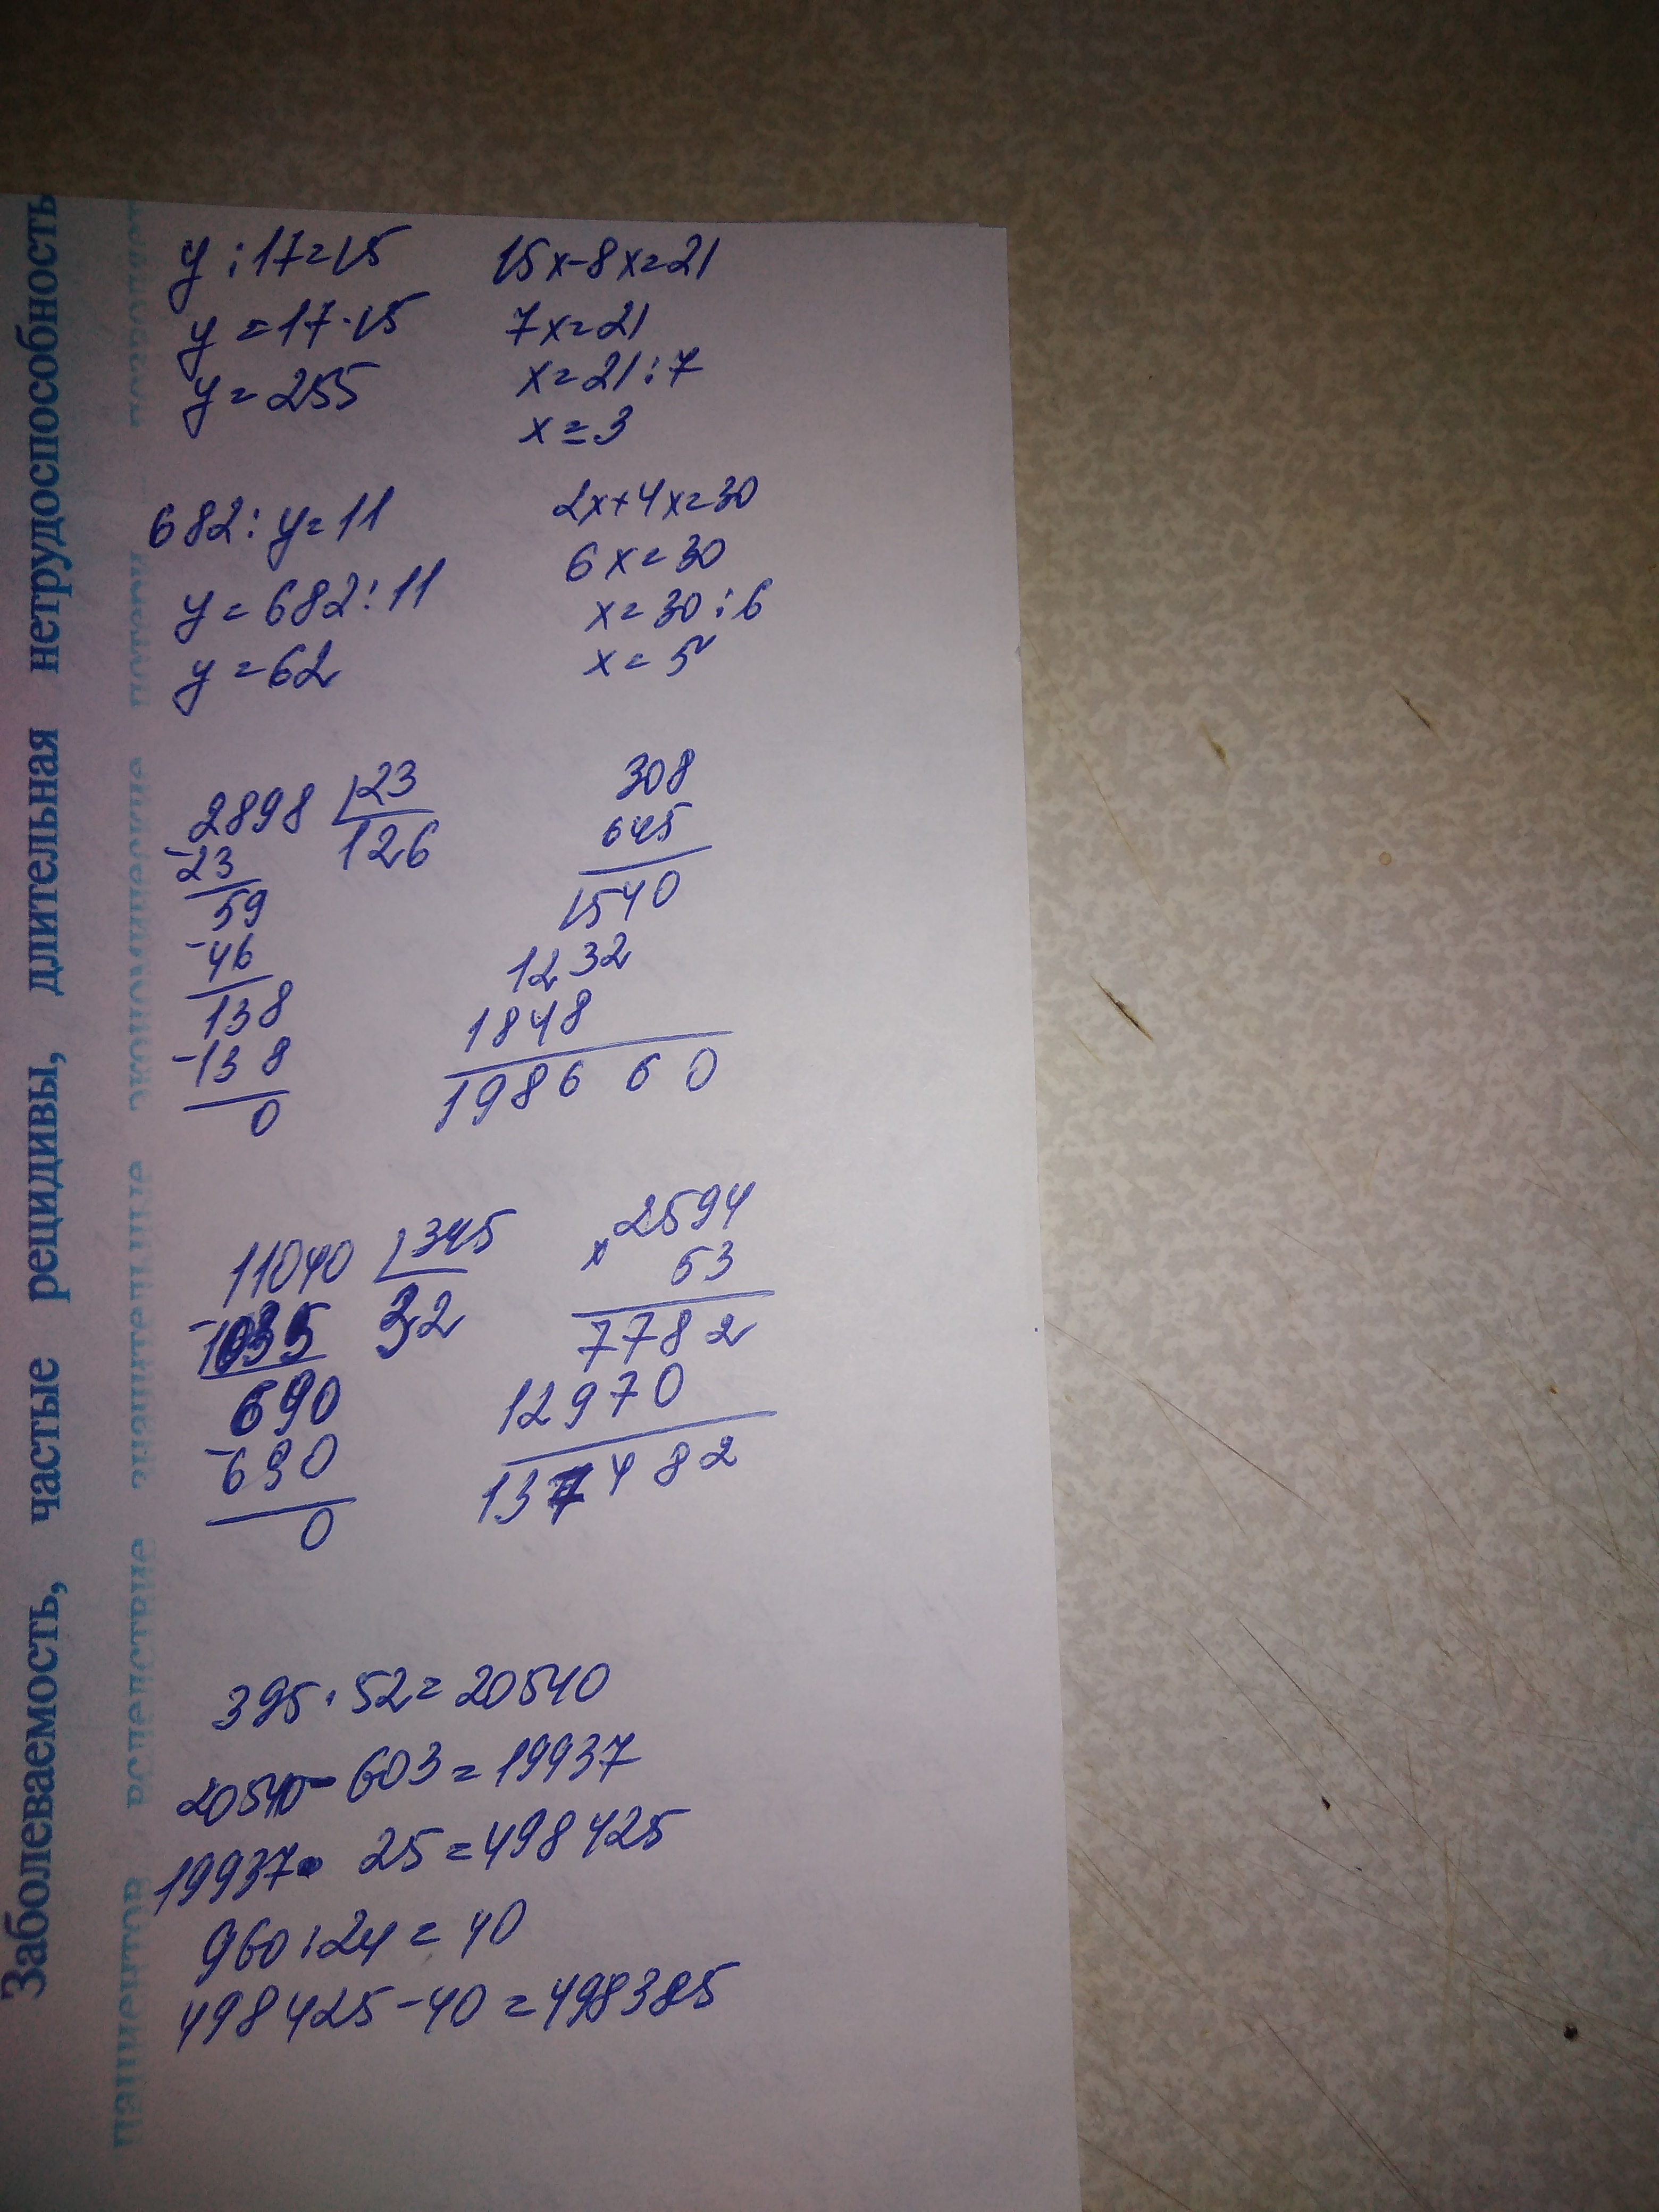 y : 17 = 15
y = 17 · 15
y = 255
15x - 8x = 21
7x = 21
x = 21 : 7
x = 3
682 : y = 11
y = 682 : 11
y = 62
2x + 4x = 30
6x = 30
x = 30 : 6
x = 5
2898 23
-23 126
59
-46
138
-138
0
308
645
1540
1232
1848
198660
11040 345
-1035 32
690
-690
0
× 2594
53
7782
12970
137482
395 · 52 = 20540
20540 - 603 = 19937
19937 · 25 = 498425
960 : 24 = 40
498425 - 40 = 498385
Заболеваемость, частые рецидивы, длительная нетрудоспособность